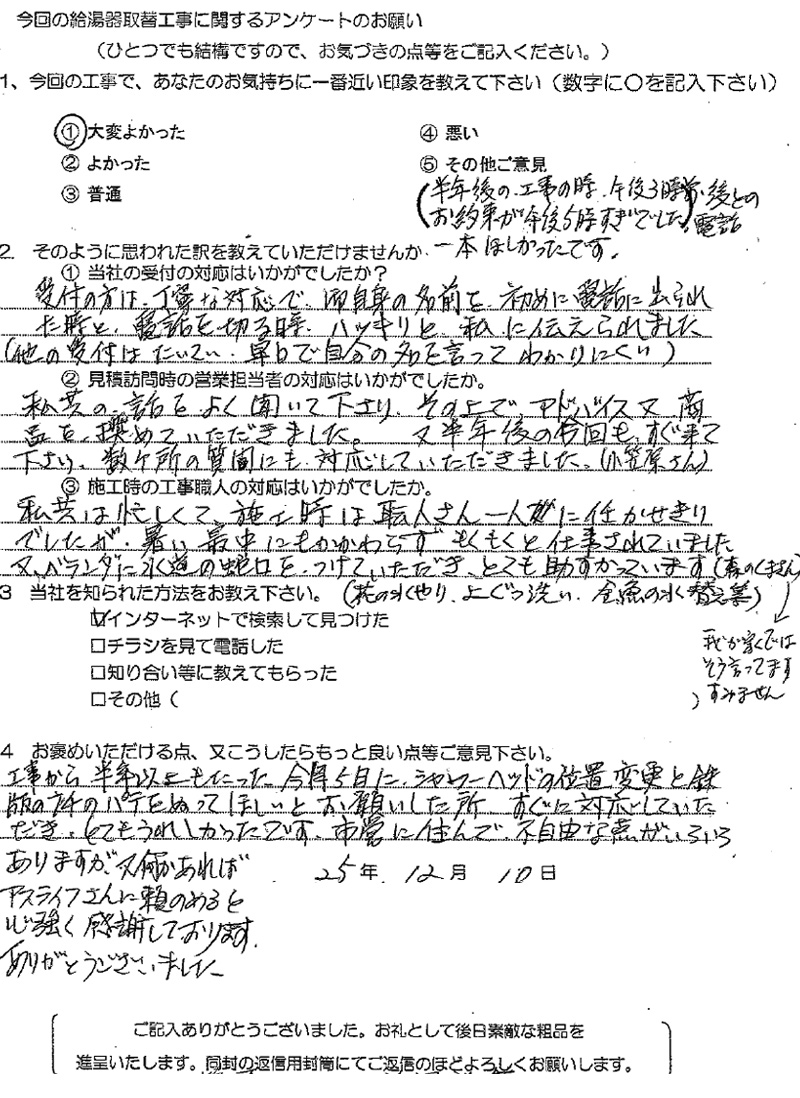 今回の給湯器取替工事に関するアンケートのお願い
(ひとつでも結構ですので、お気づきの点等をご記入ください。)
1、今回の工事で、あなたのお気持ちに一番近い印象を教えて下さい(数字に〇を記入下さい)
① 大変よかった
② よかった
③ 普通
④ 悪い
⑤ その他ご意見
(半年後の、工事の時、午後3時前後との
お約束が午後5時すぎでした)電話
一本ほしかったです。
2. そのように思われた訳を教えていただけませんか
① 当社の受付の対応はいかがでしたか?
受付の方は、丁寧な対応で、御自身の名前を、初めに電話に出られ
た時と、電話を切る時、ハッキリと、私に伝えられました
(他の受付は、たいてい、早口で自分の名を言って わかりにくい)
② 見積訪問時の営業担当者の対応はいかがでしたか。
私共の、話をよく聞いて下さり、その上で、アドバイス又商
品を、奨めていただきました。 又半年後の今回も、すぐ来て
下さり、数ケ所の質問にも、対応していただきました。(小笠原さん)
③ 施工時の工事職人の対応はいかがでしたか。
私共は忙しくて、施工時は職人さん一人に任かせきり
でしたが、暑い最中にもかかわらず もくもくと仕事されていました
又、ベランダに水道の蛇口を、つけていただき、とても助すかっています(森のくまさん)
3 当社を知られた方法をお教え下さい。 (花の水やり、よごれ洗い、金魚の水替え等)
☑インターネットで検索して見つけた
□チラシを見て電話した
□知り合い等に教えてもらった
□その他( )
我が家では
そう言ってます
すみません
4 お褒めいただける点、又こうしたらもっと良い点等ご意見下さい。
工事から半年以上もたった、今年5月に、シャワーヘッドの位置変更と鉄
版のパテをぬってほしいと お願いした所 すぐに対応していた
だき、とてもうれしかったです。市営に住んで、不自由な点がいろいろ
ありますが、又何かあれば
アスライフさんに頼のめると
心強く感謝しております。
ありがとうございました
25年 12月 10日
ご記入ありがとうございました。お礼として後日素敵な粗品を
進呈いたします。同封の返信用封筒にてご返信のほどよろしくお願いします。